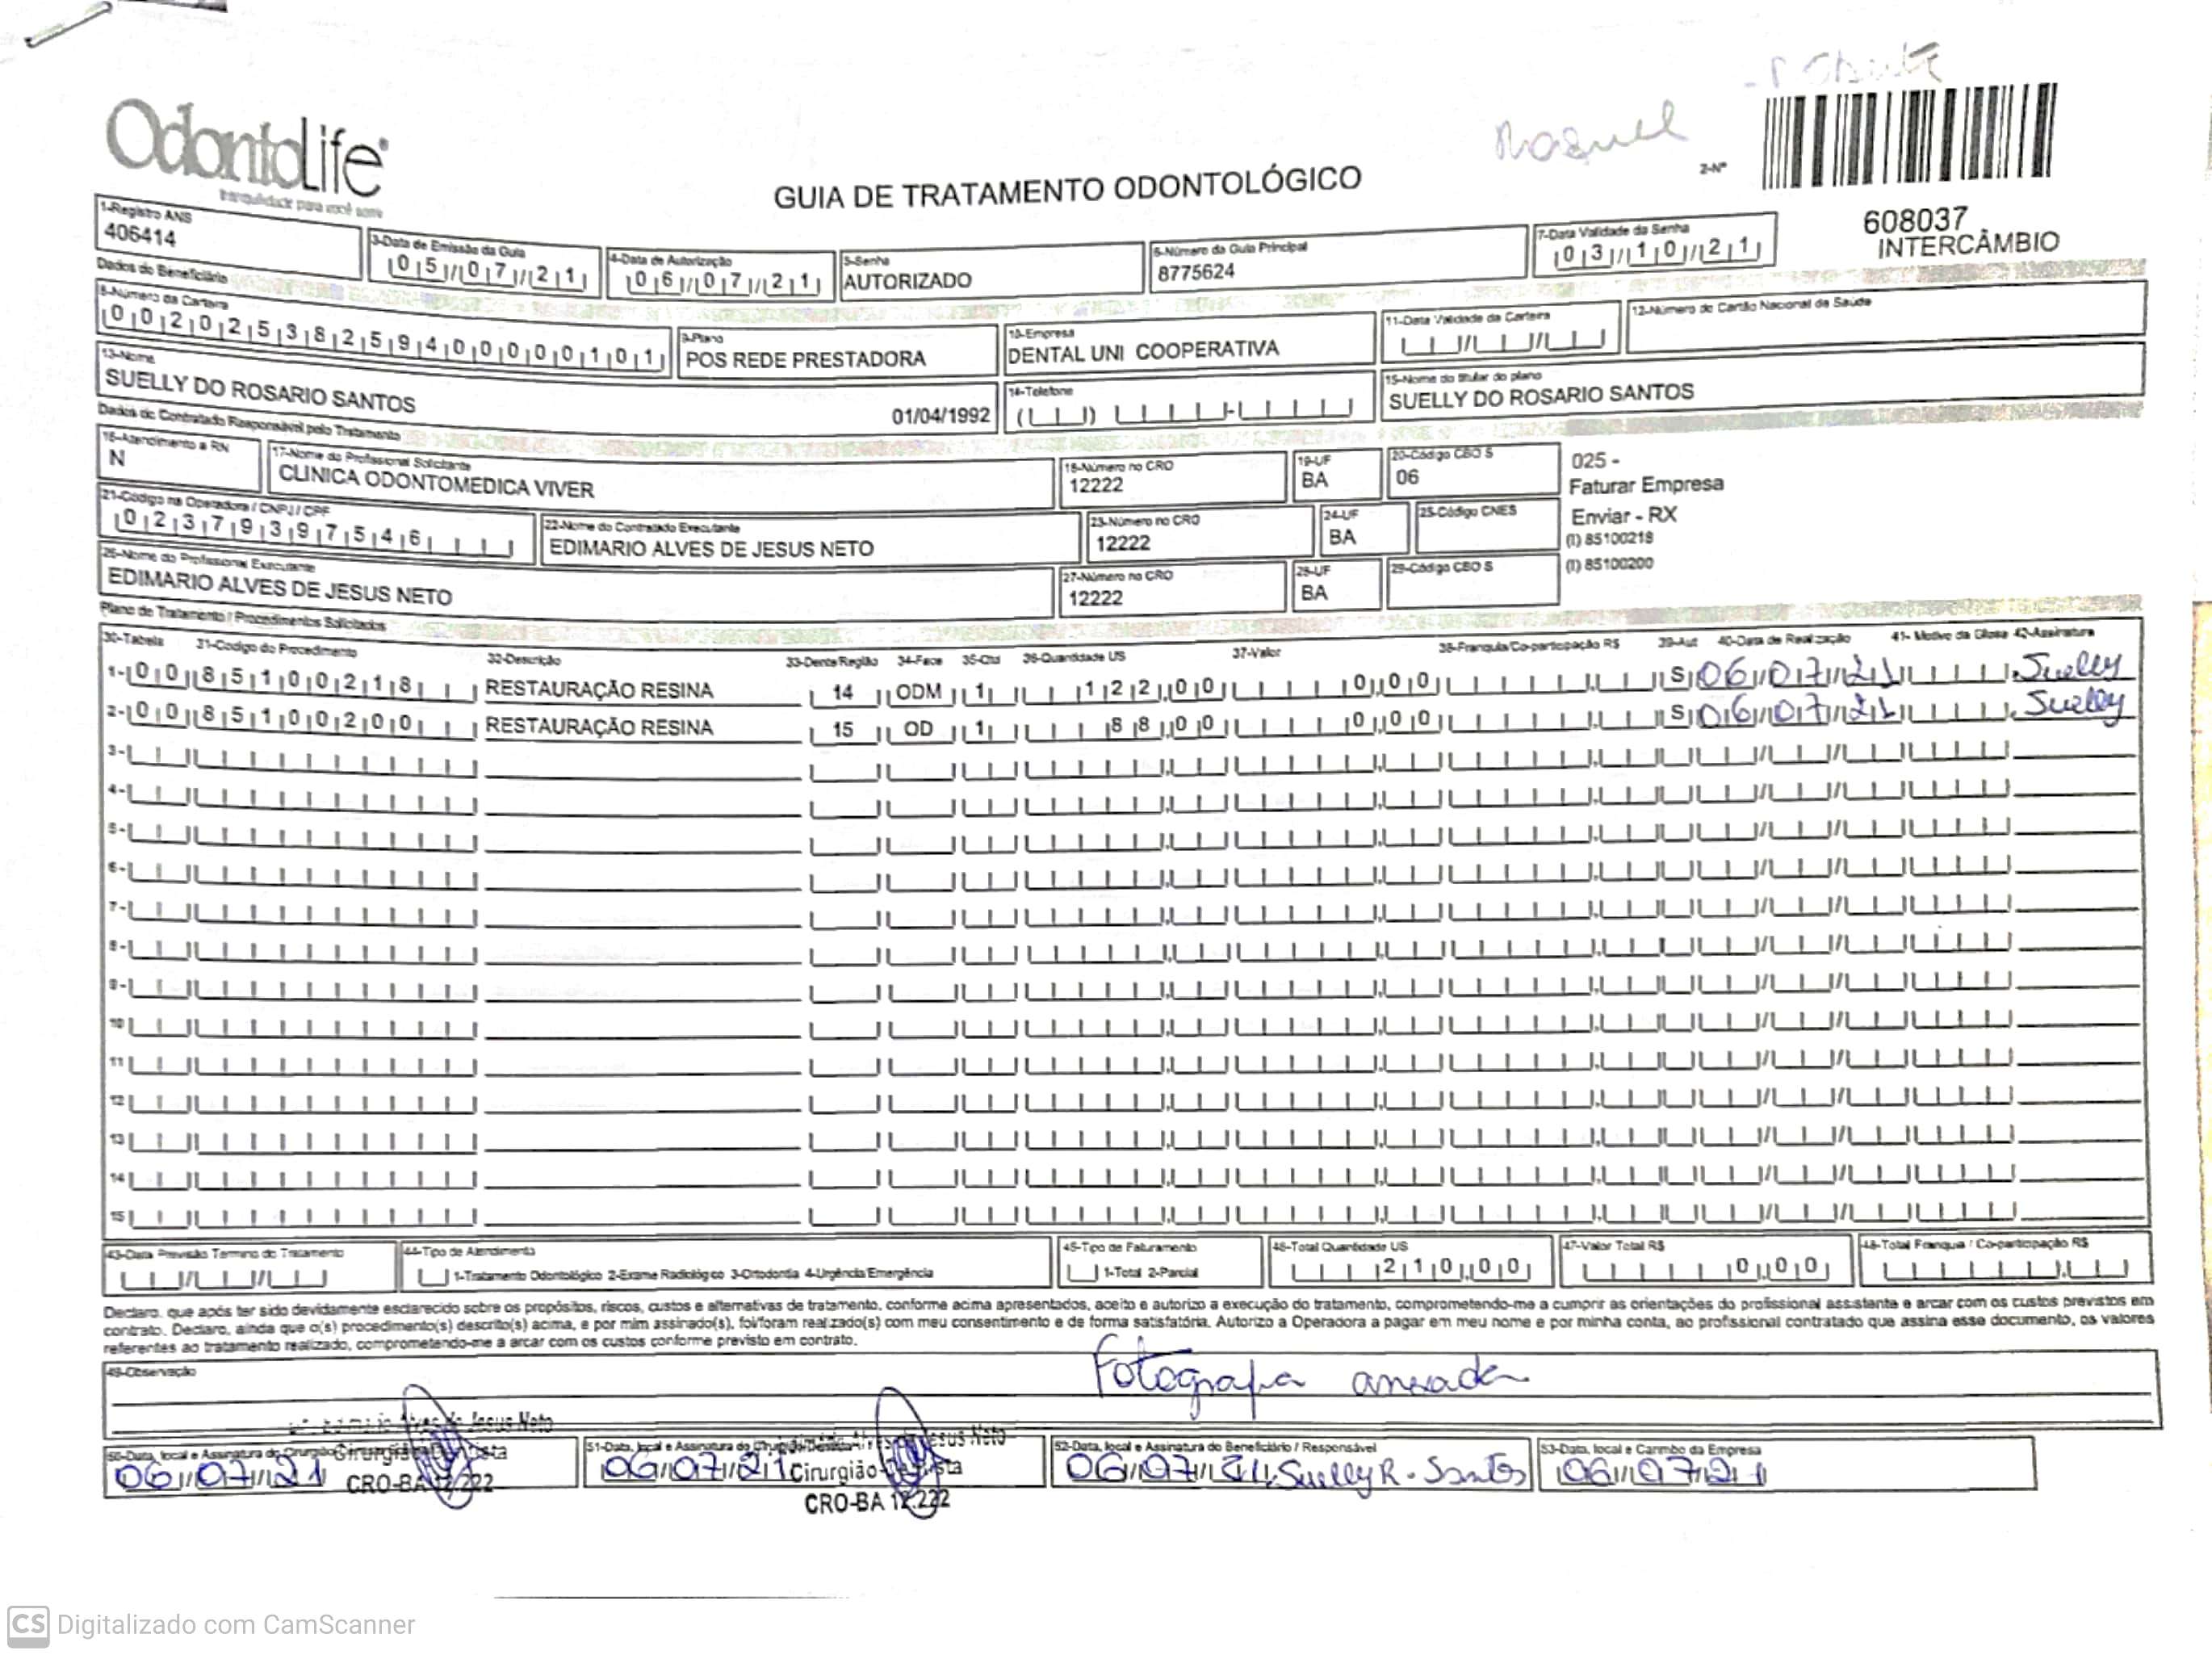 OdontoLife®
tranquilidade para você sorrir
GUIA DE TRATAMENTO ODONTOLÓGICO
2-Nº
608037
INTERCÂMBIO
1-Registro ANS
406414
3-Data de Emissão da Guia
05/07/21
4-Data de Autorização
06/07/21
5-Senha
AUTORIZADO
6-Número da Guia Principal
8775624
7-Data Validade da Senha
03/10/21
Dados do Beneficiário
8-Número da Carteira
00202538259400000101
9-Plano
POS REDE PRESTADORA
10-Empresa
DENTAL UNI COOPERATIVA
11-Data Validade da Carteira
12-Número do Cartão Nacional de Saúde
13-Nome
SUELLY DO ROSARIO SANTOS 01/04/1992
14-Telefone
15-Nome do titular do plano
SUELLY DO ROSARIO SANTOS
Dados do Contratado Responsável pelo Tratamento
16-Atendimento a RN
N
17-Nome do Profissional Solicitante
CLINICA ODONTOMEDICA VIVER
18-Número no CRO
12222
19-UF
BA
20-Código CBO S
06
025 -
Faturar Empresa
Enviar - RX
(I) 85100218
(I) 85100200
21-Código na Operadora / CNPJ / CPF
02379397546
22-Nome do Contratado Executante
EDIMARIO ALVES DE JESUS NETO
23-Número no CRO
12222
24-UF
BA
25-Código CNES
26-Nome do Profissional Executante
EDIMARIO ALVES DE JESUS NETO
27-Número no CRO
12222
28-UF
BA
29-Código CBO S
Plano de Tratamento / Procedimentos Solicitados
30-Tabela 31-Codigo do Procedimento 32-Descrição 33-Dente/Região 34-Face 35-Qtd 36-Quantidade US 37-Valor 38-Franquia/Co-participação R$ 39-Aut 40-Data de Realização 41- Motivo da Glosa 42-Assinatura
1- 00 85100218 RESTAURAÇÃO RESINA 14 ODM 1 122,00 0,00 S 06/07/21 Suelly
2- 00 85100200 RESTAURAÇÃO RESINA 15 OD 1 88,00 0,00 S 06/07/21 Suelly
3-
4-
5-
6-
7-
8-
9-
10
11
12
13
14
15
43-Data Previsão Termino do Tratamento
44-Tipo de Atendimento
1-Tratamento Odontológico 2-Exame Radiológico 3-Ortodontia 4-Urgência/Emergência
45-Tipo de Faturamento
1-Total 2-Parcial
46-Total Quantidade US
210,00
47-Valor Total R$
0,00
48-Total Franquia / Co-participação R$
Declaro, que após ter sido devidamente esclarecido sobre os propósitos, riscos, custos e alternativas de tratamento, conforme acima apresentados, aceito e autorizo a execução do tratamento, comprometendo-me a cumprir as orientações do profissional assistente e arcar com os custos previstos em
contrato. Declaro, ainda que o(s) procedimento(s) descrito(s) acima, e por mim assinado(s), foi/foram realizado(s) com meu consentimento e de forma satisfatória. Autorizo a Operadora a pagar em meu nome e por minha conta, ao profissional contratado que assina esse documento, os valores
referentes ao tratamento realizado, comprometendo-me a arcar com os custos conforme previsto em contrato.
49-Observação
Fotografia anexada
50-Data, local e Assinatura do Cirurgião
06/07/21
Alves de Jesus Neto
Cirurgião-Dentista
CRO-BA 12.222
51-Data, local e Assinatura do Cirurgião-Dentista
06/07/21
Jesus Neto
Cirurgião-Dentista
CRO-BA 12.222
52-Data, local e Assinatura do Beneficiário / Responsável
06/07/21 Suelly R. Santos
53-Data, local e Carimbo da Empresa
06/07/21
CS Digitalizado com CamScanner